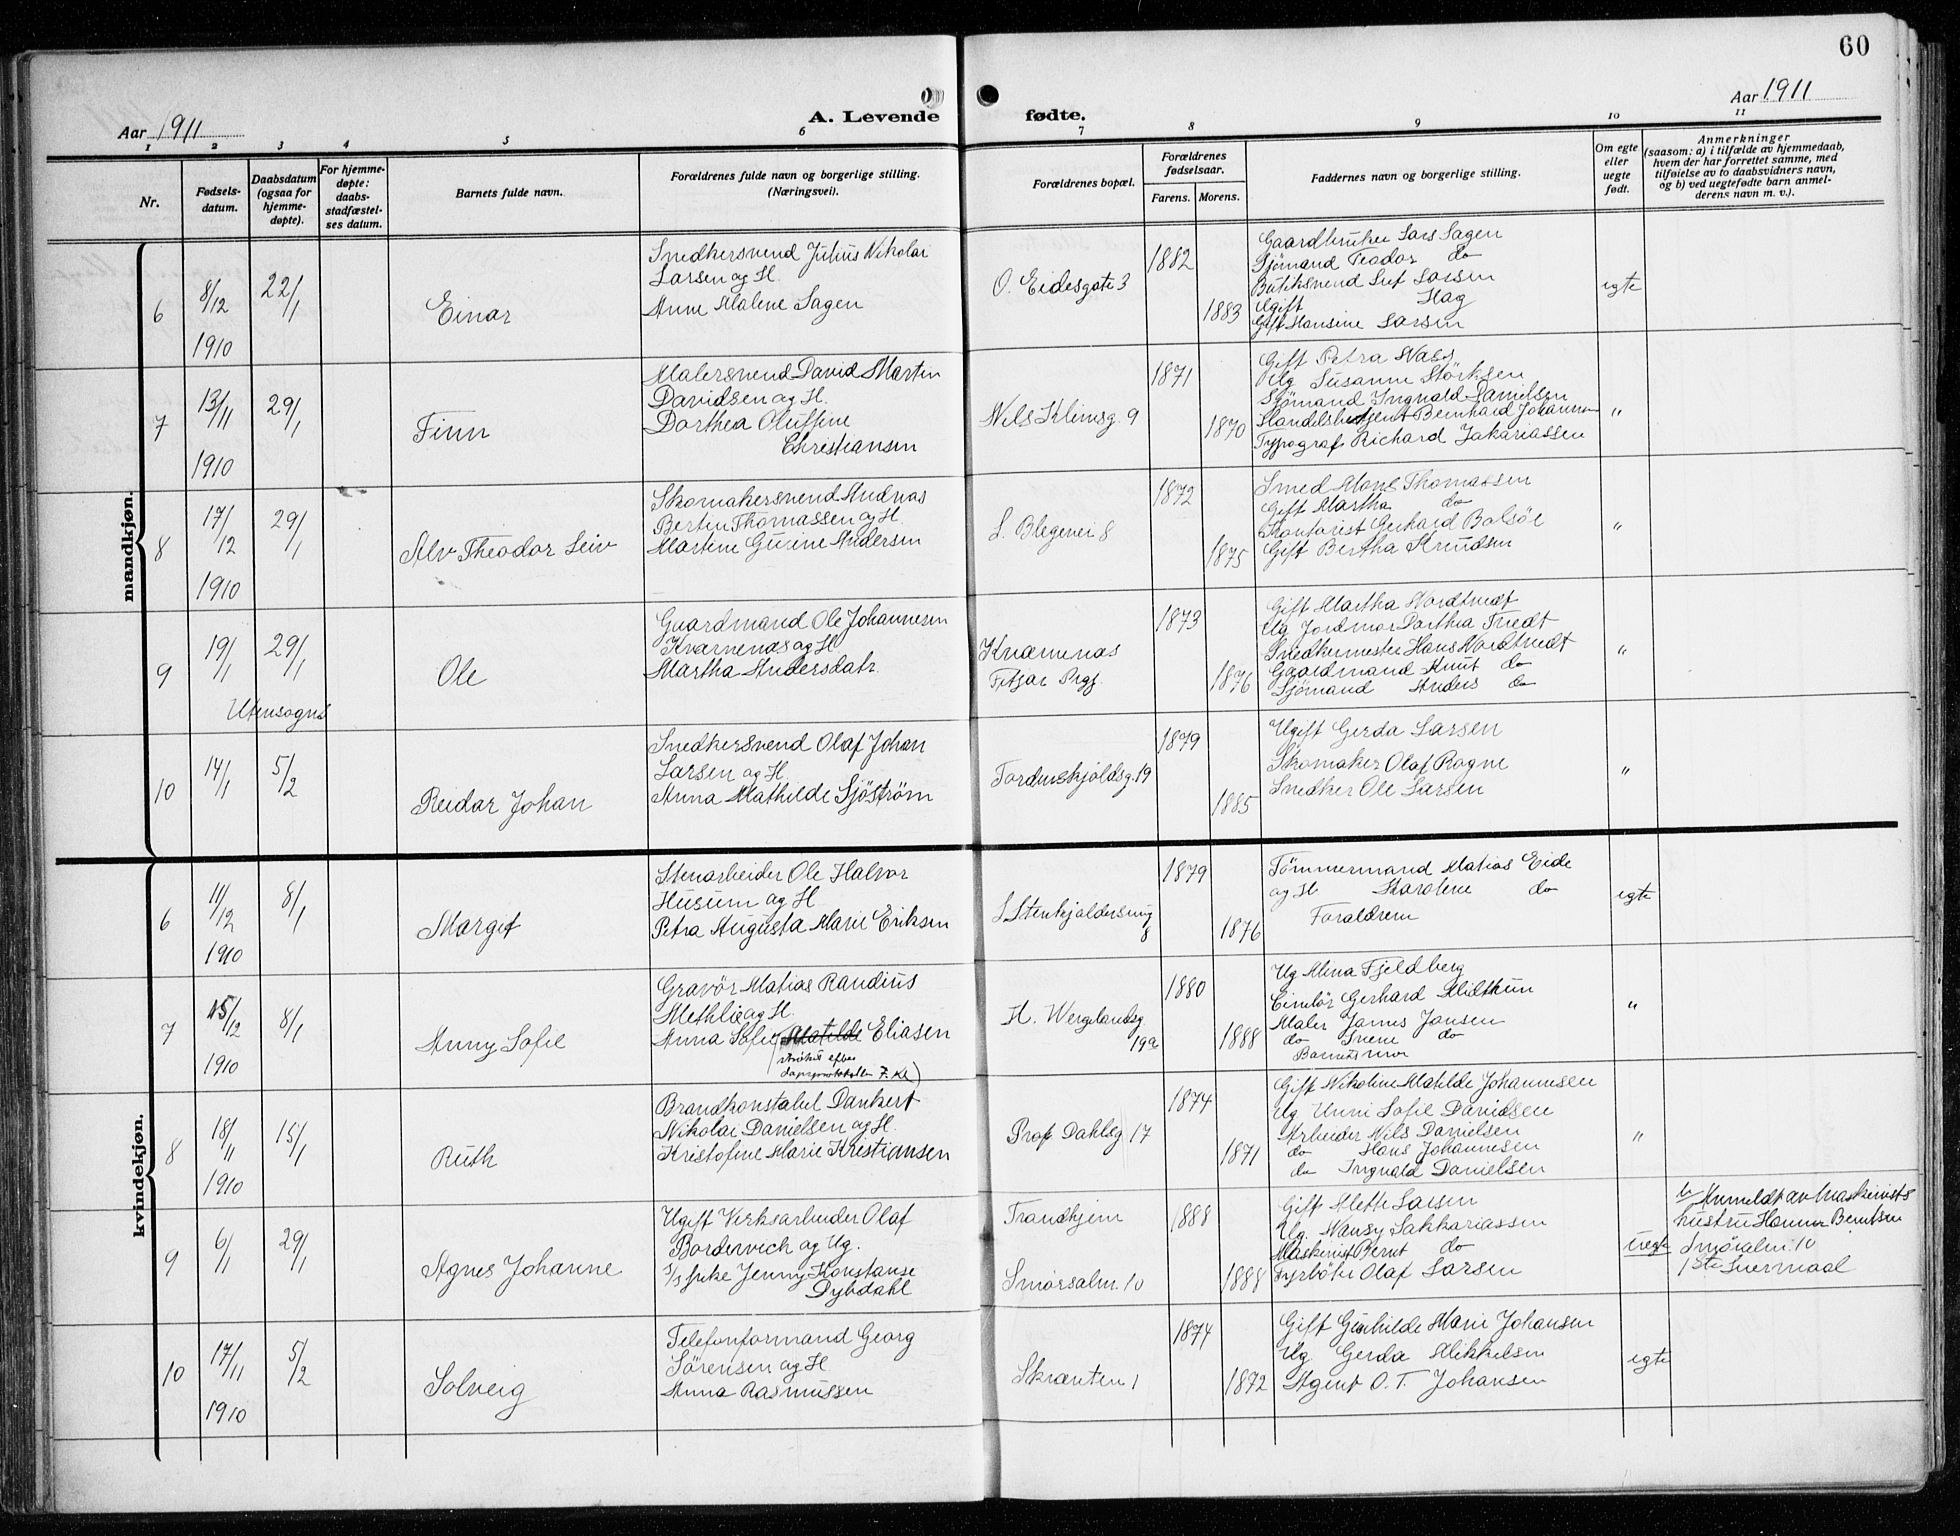 60
Aar 1911
A. Levende
fødte.
Aar 1911
1 2 3 4 5 6 7 8 9 10 11
Nr.
Fødsels-
datum.
Daabsdatum
(ogsaa for
hjemme-
døpte).
For hjemme-
døpte:
daabs-
stadfæstel-
ses datum.
Barnets fulde navn.
Forældrenes fulde navn og borgerlige stilling.
(Næringsvei).
Forældrenes bopæl.
Forældrenes
fødselsaar.
Farens. Morens.
Faddernes navn og borgerlige stilling.
Om egte
eller
uegte
født.
Anmerkninger
(saasom: a) i tilfælde av hjemmedaab,
hvem der har forrettet samme, med
tilføielse av to daabsvidners navn,
og b) ved uegtefødte barn anmel-
derens navn m. v.).
mandkjøn.
6
8/12
1910
22/1
Einar
Snedkersvend Julius Nikolai
Larsen og H.
Anne Malene Sagen
O. Eidesgate 3
1882
1883
Gaardbruker Lars Sagen
Sjömand Teodor do
Butiksvend Leif Larsen
Ugift Hag
Gift Hansine Larsen
egte
7
13/11
1910
29/1
Finn
Malersvend David Martin
Davidsen og H.
Dorthea Oluffine
Christiansen
Nils Klimsg. 9
1871
1870
Gift Petra Næss
Ug Susanne Störksen
Sjömand Ingvald Danielsen
Bernhard Johannes
Typograf Richard Zakariassen
"
8
17/12
1910
29/1
Alv Theodor Leiv
Skomakersvend Andreas
Bertin Thomassen og H.
Martine Gurine Andersen
L. Blegevei 8
1872
1875
Smed Mons Thomassen
Gift Martha do
Kontorist Gerhard Bolsöe
Gift Bertha Knudsen
"
9
19/1
29/1
Utensogns
Ole
Gaardmand Ole Johannesen
Kvarnenæs og H
Martha Andersdatr.
Kvarnenæs
Fitjar Prgj.
1873
1876
Gift Martha Nordtvedt
Ug Jordmor Dorthea Tvedt
Snedkermester Hans Nordtvedt
Gaardmand Knut do
Sjömand Anders do
"
10
14/1
5/2
Reidar Johan
Snedkersvend Olaf Johan
Larsen og H.
Anna Mathilde Sjöström
Tordenskjoldsg. 19
1879
1885
Ugift Gerda Larsen
Skomaker Olaf Rogne
Snedker Ole Larsen
"
kvindekjøn.
6
11/12
1910
8/1
Margit
Stenarbeider Ole Halvor
Husum og H
Petra Augusta Marie Eriksen
8
1879
1876
Tömmermand Matias Eide
og H Karolene do
Forældrene
egte
7
15/12
1910
8/1
Anny Sofie
Gravör Matias Randius
Methlie og H.
Anna Sofie Matilde Eliasen
(strøket efter
daapsprotokollen F. Kl)
H. Wergelandsg
19a
1880
1888
Ug Mina Fjeldberg
Cicelör Gerhard Midthun
Maler James Jansen
do Irene do
Barnets mor
"
8
18/11
1910
15/1
Ruth
Brandkonstabel Dankert
Nikolai Danielsen og H.
Kristofine Marie Kristiansen
Prof Dahlsg 17
1874
1871
Gift Nikoline Matilde Johannesen
Ug Unni Sofie Danielsen
Arbeider Nils Danielsen
do Hans Johannesen
do Ingvald Danielsen
"
9
6/1
29/1
Agnes Johanne
Ugift Verksarbeider Olaf
Bordervich og Ug.
Jenny Konstanse
Dybdahl
Trondhjem
Smörsalm. 10
1888
1888
Gift Mette Larsen
Ug. Nansy Sakkariassen
Maskinist Bernt do
Fyrböter Olaf Larsen
uegte
b/ Anmeldt av Maskinists
hustru Hanna Berntsen
Smörsalm. 10
1ste Leiermaal
10
17/11
1910
5/2
Solveig
Telefonformand Georg
Sörensen og H
Anna Rasmussen
Skrænten 1
1874
1872
Gift Gunhilde Marie Johansen
Ug Gerda Mikkelsen
Agent O. T. Johansen
egte